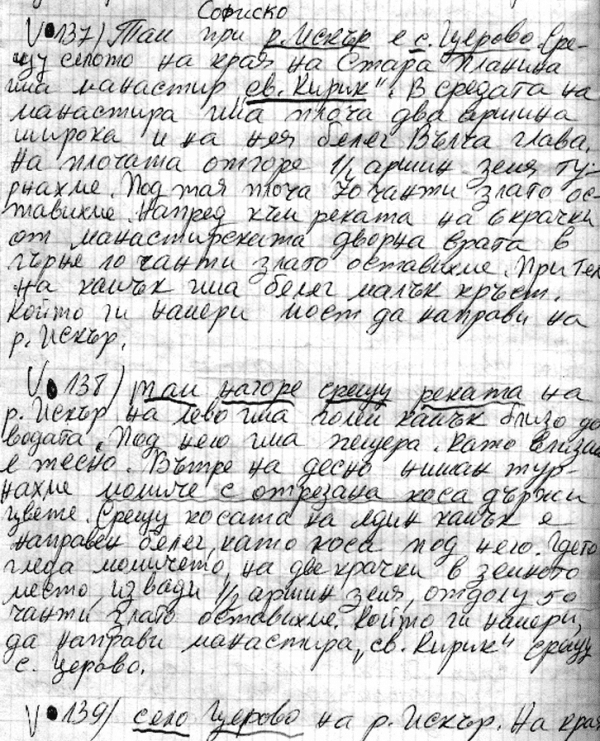 Софиско
V•137/ Там при р. Искър е с. Церово. Сре-
щу селото на края на Стара планина
има манастир „св. Кирик". В средата на
манастира има плоча два аршина
широка и на нея белег вълча глава.
На плочата отгоре 1/2 аршин земя ту-
рнахме. Под тая плоча 70 чанти злато ос-
тавихме. Напред към реката на 6 крачки
от манастирската дворна врата в
гърне 10 чанти злато оставихме. При тех
на камък има белег малък кръст.
Който ги намери мост да направи на
р. Искър.
V•138/ Там нагоре срещу реката на
р. Искър на лево има голем камък близо до
водата. Под него има пещера. Като влизаш
е тесно. Вътре на десно нишан тур-
нахме момиче с отрезана коса държи
цвете. Срещу косата на един камък е
направен белег като коса под него. Където
гледа момичето, на две крачки в земното
место, извади 1/2 аршин земя, отдолу 50
чанти злато оставихме. Който ги намери,
да направи манастира „св. Кирик" срещу
с. Церово.
V•139/ село Церово на р. Искър. На края